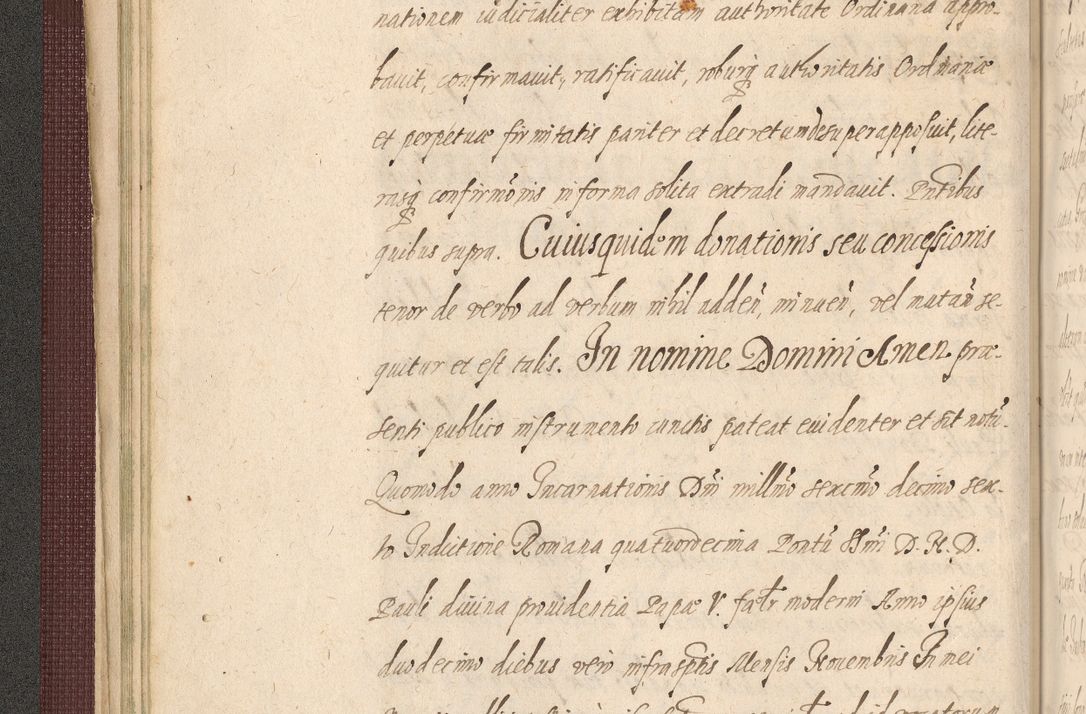 nationem iudicialiter exhibitam authoritate Ordinaria appro-
bauit, confirmauit, ratificauit, roburq; authoritatis Ordinariæ
et perpetuæ firmitatis pariter et decretum desuper apposuit, lite-
rasq; confirmõnis in forma solita extradi mandauit. Pñtibus
quibus supra. Cuiusquidem donationis seu concessionis
tenor de verbo ad verbum nihil addeñ, minueñ, vel mutañ se-
quitur et est talis. In nomine Domini Amen præ-
senti publico instrumento cunctis pateat euidenter et sit notũ.
Quomodo anno Incarnationis Dñi millmõ sexcmõ decimo sex-
to Indictione Romana quatuordecima Pontũ SSmi D. N. D.
Pauli diuina prouidentia Papæ V. fælr moderni Anno ipsius
duodecimo diebus vero infrasptis Mensis Nouembris In mei